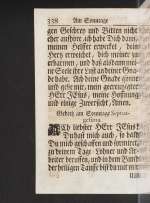 338 Am Sonntage
gen Geschrey und Bitten nicht
eher aufhöre, ich habe Dich dann,
meinen Helfer erweckt, dein
Hertz erweichet, dich meiner zu
erbarmen, und daß also dann mei-
ne Seele ihre Lust an deiner Gna-
de habe. Ach deine Gnade gönne
und gib mir, mein getreuester
HErr JEsu, meine Hoffnung
und einige Zuversicht, Amen.
Gebeth am Sonntage Septua-
gesima.
Ach liebster HErr JEsu!
Du hast mich auch, so bald
Du mich geschaffen und formiret,
zu deinem Tage-Löhner und Ar-
beiter beruffen, und in dem Bunde
der heiligen Tauffe bist du mit mir